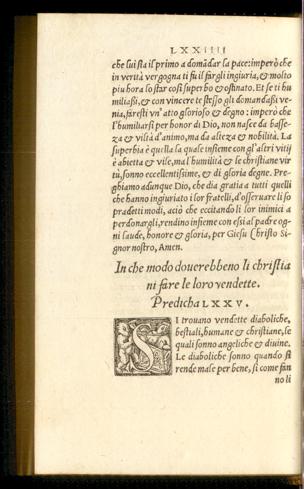 LXXIIII
che lui sia il primo a domãdar la pace: imperò che
in verità vergogna ti fu il fargli ingiuria, & molto
piu hora lo star così superbo & ostinato. Et se ti hu
miliassi, & con vincere te stesso gli domandassi ve-
nia, faresti vn'atto glorioso & degno: imperò che
l'humiliarsi per honor di Dio, non nasce da basse-
za & viltà d'animo, ma da alteza & nobilità. La
superbia è quella la quale insieme con gl'altri vitij
è abietta & vile, ma l'humilità & le christiane vir
tù, sonno eccellentissime, & di gloria degne. Pre-
ghiamo adunque Dio, che dia gratia a tutti quelli
che hanno ingiuriato i lor fratelli, d'osseruare li so
pradetti modi, aciò che eccitando li lor inimici a
perdonargli, rendino insieme con essi al padre og-
ni laude, honore & gloria, per Giesu Christo Si-
gnor nostro, Amen.
In che modo douerebbeno li christia
ni fare le loro vendette.
Predicha LXXV.
SI trouano vendette diaboliche,
bestiali, humane & christiane, le
quali sonno angeliche & diuine.
Le diaboliche sonno quando si
rende male per bene, sì come fan
no li